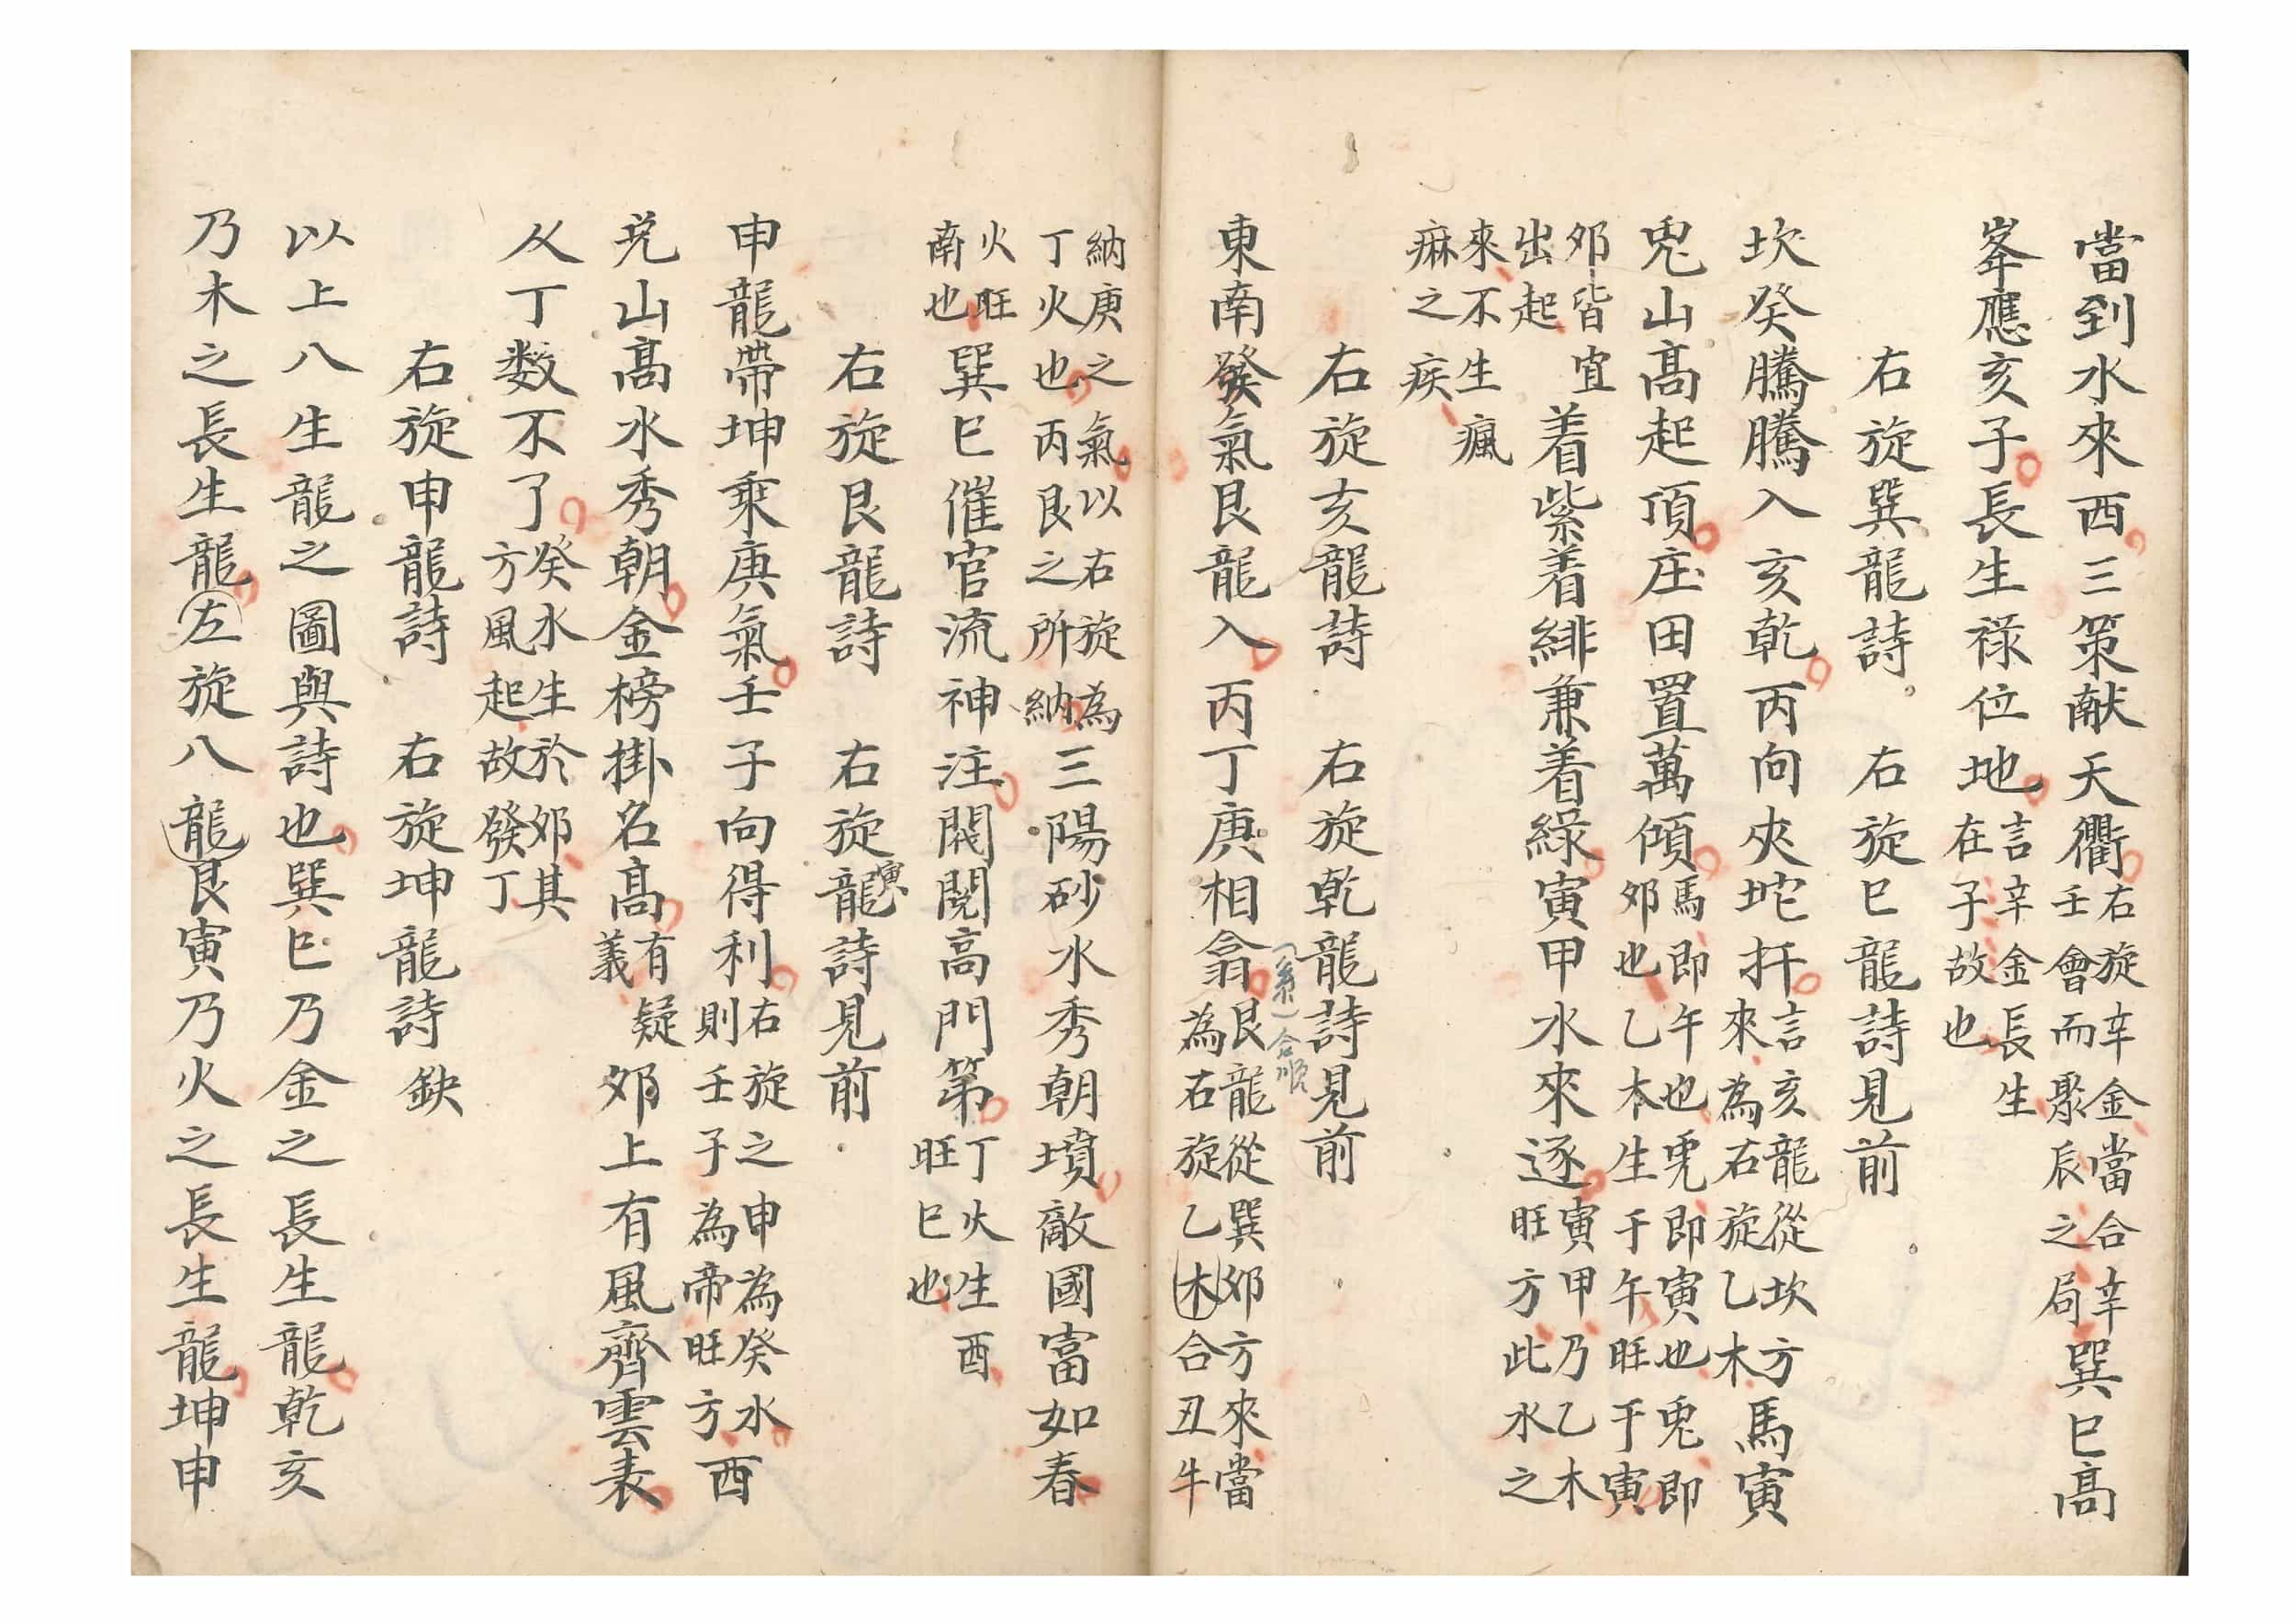 當到水來西三策献天衢右旋辛金當合辛壬會而聚辰之局巽巳高
峯應亥子長生祿位地言辛金長生在子故也
右旋巽龍詩 右旋巳龍詩見前
坎癸騰騰入亥乾丙向夾坨扞言亥龍從坎方來為右旋乙木馬寅
兎山高起頂庄田置萬傾馬即午也兎即寅也兎即郊也乙木生于午旺于寅
郊皆宜出起着紫着緋兼着綠寅甲水來逐寅甲乃乙木旺方此水之
來不生瘋痳之疾
右旋亥龍詩 右旋乾龍詩見前
東南發氣艮龍入丙丁庚相翕艮龍從巽郊方來當為右旋乙木合丑牛
(翕)合順
納庚之氣以右旋為丁火也丙艮之所納三陽砂水秀朝墳敵國富如春
火旺南也巽巳催官流神注閥閱高門第丁火生酉旺巳也
右旋艮龍詩 右旋寅龍詩見前
申龍帶坤乘庚氣壬子向得利右旋之申為癸水則壬子為帝旺方酉
兊山高水秀朝金榜掛名高有疑義郊上有風齊雲表
人丁数不了癸水生於郊其方風起故發丁
右旋申龍詩 右旋坤龍詩 鈌
以上八生龍之圖與詩也巽巳乃金之長生龍乾亥
乃木之長生龍左旋八龍艮寅乃火之長生龍坤申